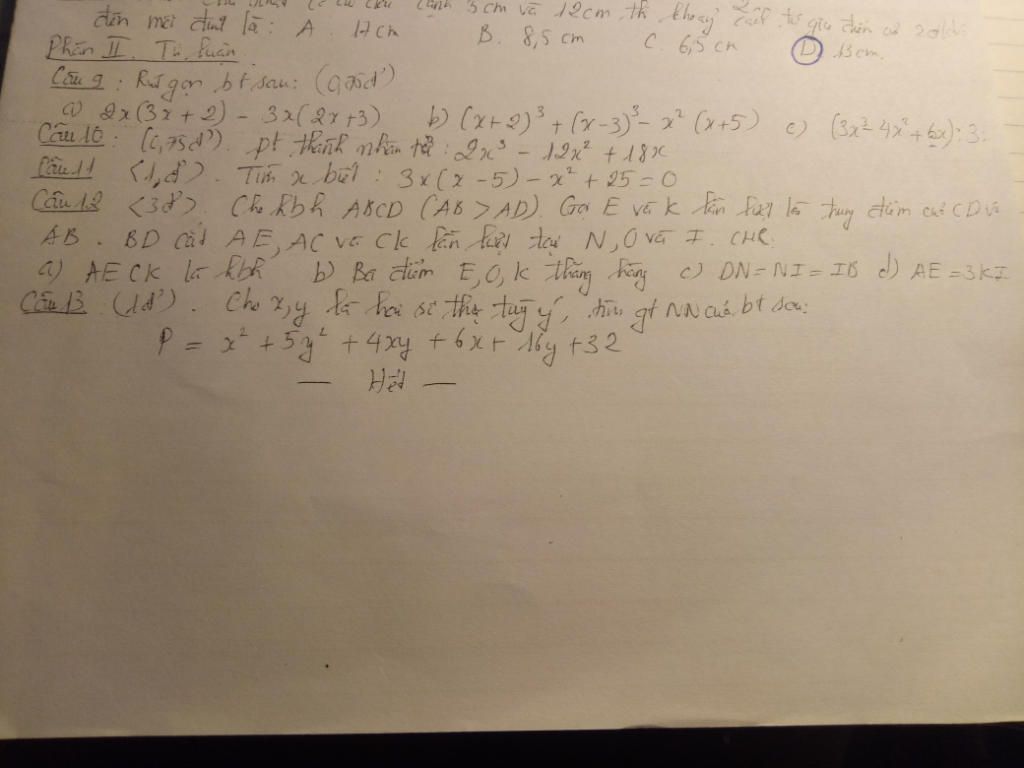 cạnh 5 cm và 12 cm th khoảng cách từ giao điểm
đến mỗi đỉnh là: A. 17 cm B. 8,5 cm C. 6,5 cm D. 13 cm.
Phần II. Tự luận
Câu 9: Rút gọn bt sau: (0,75đ')
a) 2x(3x + 2) - 3x(2x + 3) b) (x + 2)³ + (x - 3)³ - x² (x + 5) c) (3x³ - 4x² + 6x) : 3
Câu 10: (0,75đ'). pt thành nhân tử: 2x³ - 12x² + 18x
Câu 11 <1,đ'>. Tìm x biết: 3x(x - 5) - x² + 25 = 0
Câu 12 <3đ'>. Cho hbh ABCD (AB > AD). Gọi E và K lần lượt là trung điểm của CD và
AB. BD cắt AE, AC và CK lần lượt tại N, O và I. CMR:
a) AECK là hbh b) Ba điểm E, O, K thẳng hàng c) DN = NI = IB d) AE = 3KI
Câu 13 (1đ'). Cho x, y là hai số thực tuỳ ý, tìm gt NN của bt sau:
P = x² + 5y² + 4xy + 6x + 16y + 32
— Hết —